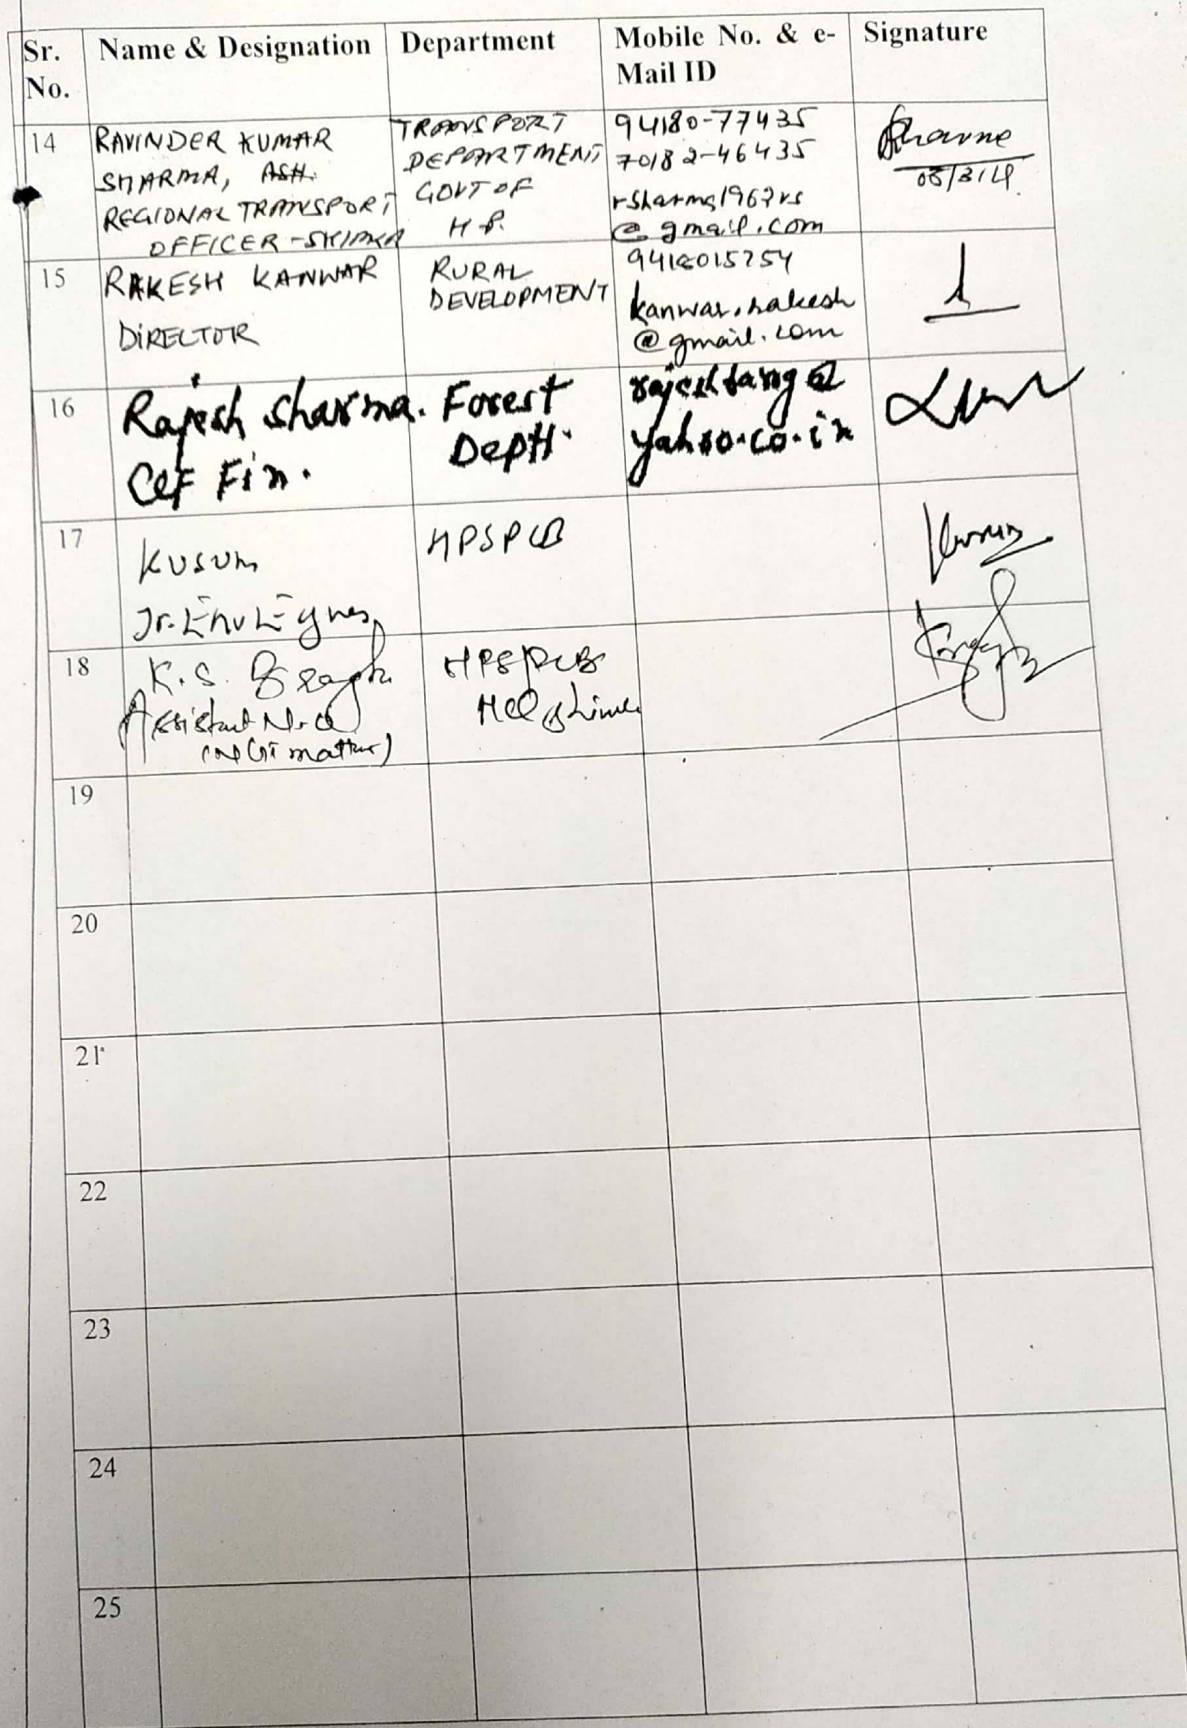 Sr. No.
Name & Designation
Department
Mobile No. & e-Mail ID
Signature
14
RAVINDER KUMAR
SHARMA,
REGIONAL TRANSPORT
OFFICER - SHIMLA
TRANSPORT
DEPARTMENT
GOVT OF
H.P.
94180-77435
70182-46435
@ gmail.com
15
RAKESH KANWAR
DIRECTOR
RURAL
DEVELOPMENT
kanwar.rakesh
@gmail.com
16
Rajesh Sharma.
CCF Fin.
Forest
Deptt.
yahoo.co.in
17
KUSUM
Jr. Env
HPSPCB
18
K.S.
Assistant
matter)
HPSPCB
19
20
21
22
23
24
25